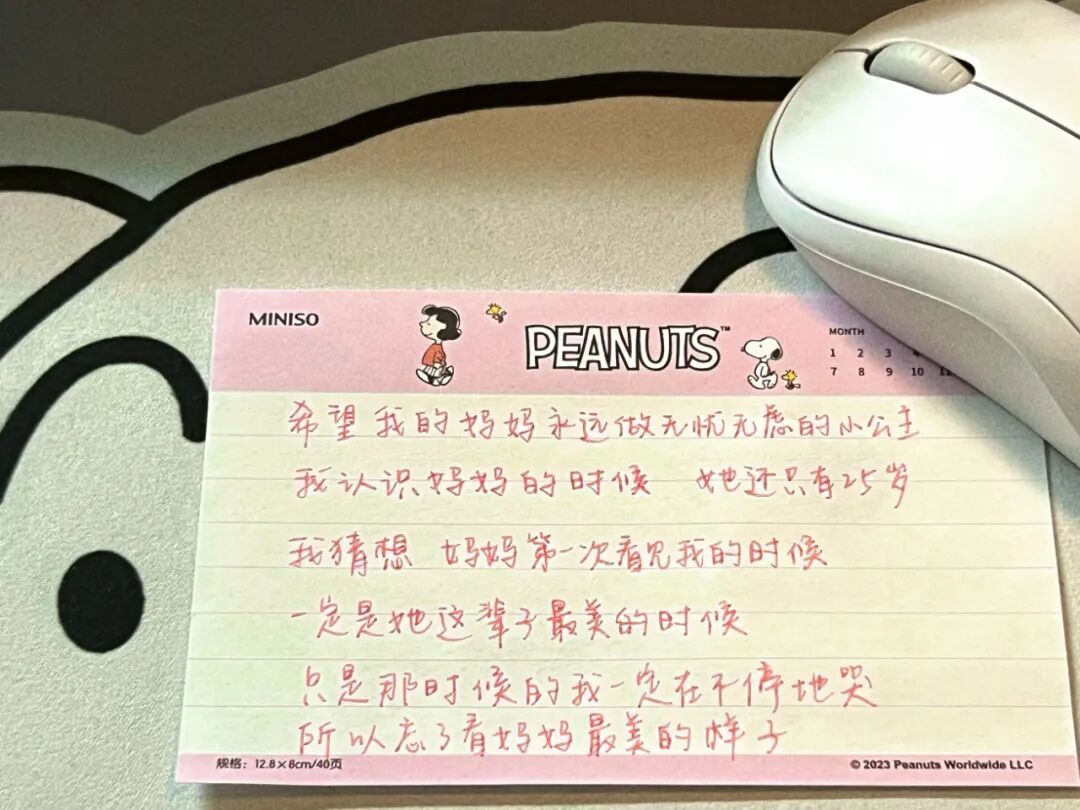 MINISO
PEANUTS™
MONTH
1 2 3 4
7 8 9 10 11
希望我的妈妈永远做无忧无虑的小公主
我认识妈妈的时候 她还只有25岁
我猜想 妈妈第一次看见我的时候
一定是她这辈子最美的时候
只是那时候的我一定在不停地哭
所以忘了看妈妈最美的样子
规格：12.8×8cm/40页
© 2023 Peanuts Worldwide LLC